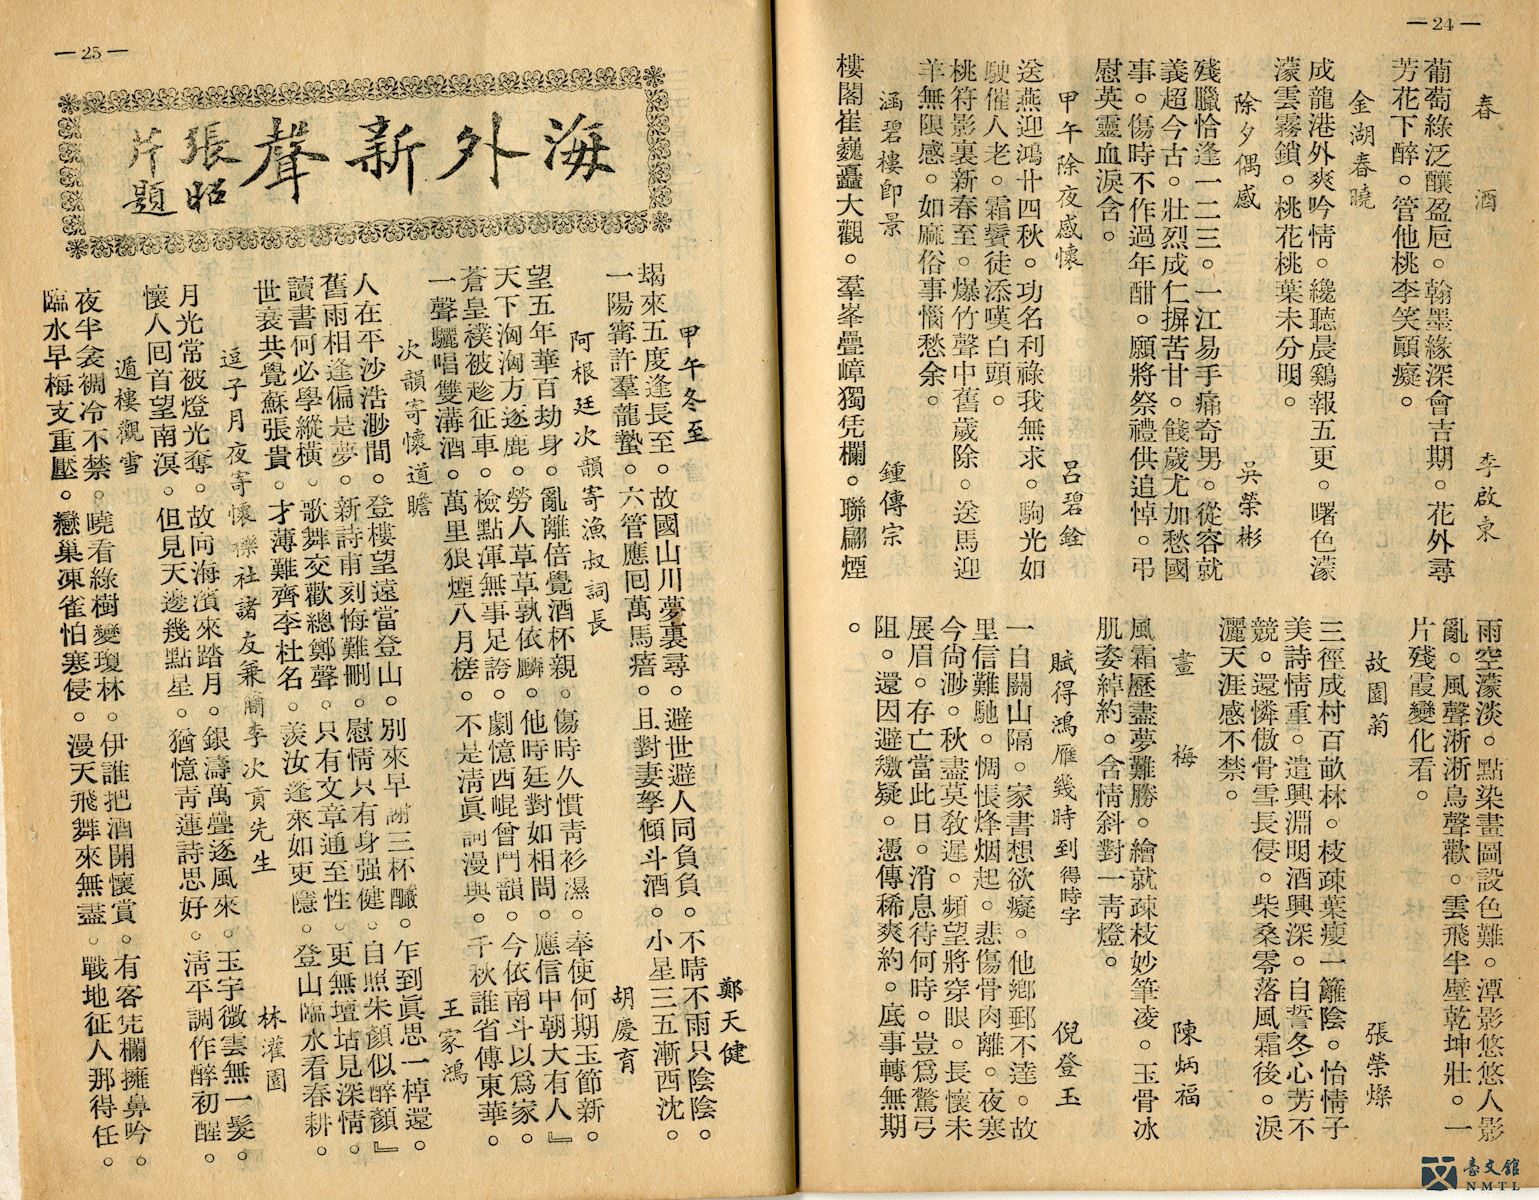 — 24 —
春酒　李啟東
葡萄綠泛釀盈巵。翰墨緣深會吉期。花外尋
芳花下醉。管他桃李笑顚癡。
金湖春曉
成龍港外爽吟情。纔聽晨鷄報五更。曙色濛
濛雲霧鎖。桃花桃葉未分明。
除夕偶感　吳榮彬
殘臘恰逢一二三。一江易手痛奇男。從容就
義超今古。壯烈成仁摒苦甘。餞歲尤加愁國
事。傷時不作過年酣。願將祭禮供追悼。弔
慰英靈血淚含。
甲午除夜感懷　呂碧銓
送燕迎鴻廿四秋。功名利祿我無求。駒光如
駛催人老。霜鬢徒添嘆白頭。
桃符影裏新春至。爆竹聲中舊歲除。送馬迎
羊無限感。如麻俗事惱愁余。
涵碧樓即景　鍾傳宗
樓閣崔巍矗大觀。羣峯疊嶂獨凭欄。聯翩煙
雨空濛淡。點染畫圖設色難。潭影悠悠人影
亂。風聲淅淅鳥聲歡。雲飛半壁乾坤壯。一
片殘霞變化看。
故園菊　張榮燦
三徑成村百畝林。枝疎葉瘦一籬陰。怡情子
美詩情重。遣興淵明酒興深。自誓冬心芳不
競。還憐傲骨雪長侵。柴桑零落風霜後。淚
灑天涯感不禁。
畫梅　陳炳福
風霜歷盡夢難勝。繪就疎枝妙筆凌。玉骨冰
肌委綽約。含情斜對一靑燈。
賦得鴻雁幾時到 得時字　倪登玉
一自關山隔。家書想欲癡。他鄕郵不達。故
里信難馳。惆悵烽烟起。悲傷骨肉離。夜寒
今尙渺。秋盡莫敎遲。頻望將穿眼。長懷未
展眉。存亡當此日。消息待何時。豈爲驚弓
阻。還因避繳疑。憑傳稀爽約。底事轉無期
。
— 25 —
海外新聲
張昭芹題
甲午冬至　鄭天健
朅來五度逢長至。故國山川夢裏尋。避世避人同負負。不晴不雨只陰陰。
一陽寗許羣龍蟄。六管應囘萬馬瘖。且對妻孥傾斗酒。小星三五漸西沈。
阿根廷次韻寄漁叔詞長　胡慶育
望五年華百劫身。亂離倍覺酒杯親。傷時久慣靑衫濕。奉使何期玉節新。
天下洶洶方逐鹿。勞人草草孰依麟。他時廷對如相問。應信中朝大有人』
蒼皇襆被趁征車。檢點渾無事足誇。劇憶西崐曾鬥韻。今依南斗以爲家。
一聲驪唱雙溝酒。萬里狼煙八月槎。不是淸眞詞漫與。千秋誰省傳東華。
次韻寄懷道瞻　王家鴻
人在平沙浩渺間。登樓望遠當登山。別來早謝三杯釅。乍到眞思一棹還。
舊雨相逢偏是夢。新詩甫刻悔難刪。慰情只有身强健。自照朱顏似醉顏』
讀書何必學縱橫。歌舞交歡總鄭聲。只有文章通至性。更無壇坫見深情。
世衰共覺蘇張貴。才薄難齊李杜名。羨汝蓬來如更隱。登山臨水看春耕。
逗子月夜寄懷櫟社諸友兼簡李次貢先生　林灌園
月光常被燈光奪。故向海濱來踏月。銀濤萬疊逐風來。玉宇微雲無一髮。
懷人囘首望南溟。但見天邊幾點星。猶憶靑蓮詩思好。淸平調作醉初醒。
遁樓觀雪
夜半衾裯冷不禁。曉看綠樹變瓊林。伊誰把酒開懷賞。有客凭欄擁鼻吟。
臨水早梅支重壓。戀巢凍雀怕寒侵。漫天飛舞來無盡。戰地征人那得任。
臺文館
NMTL